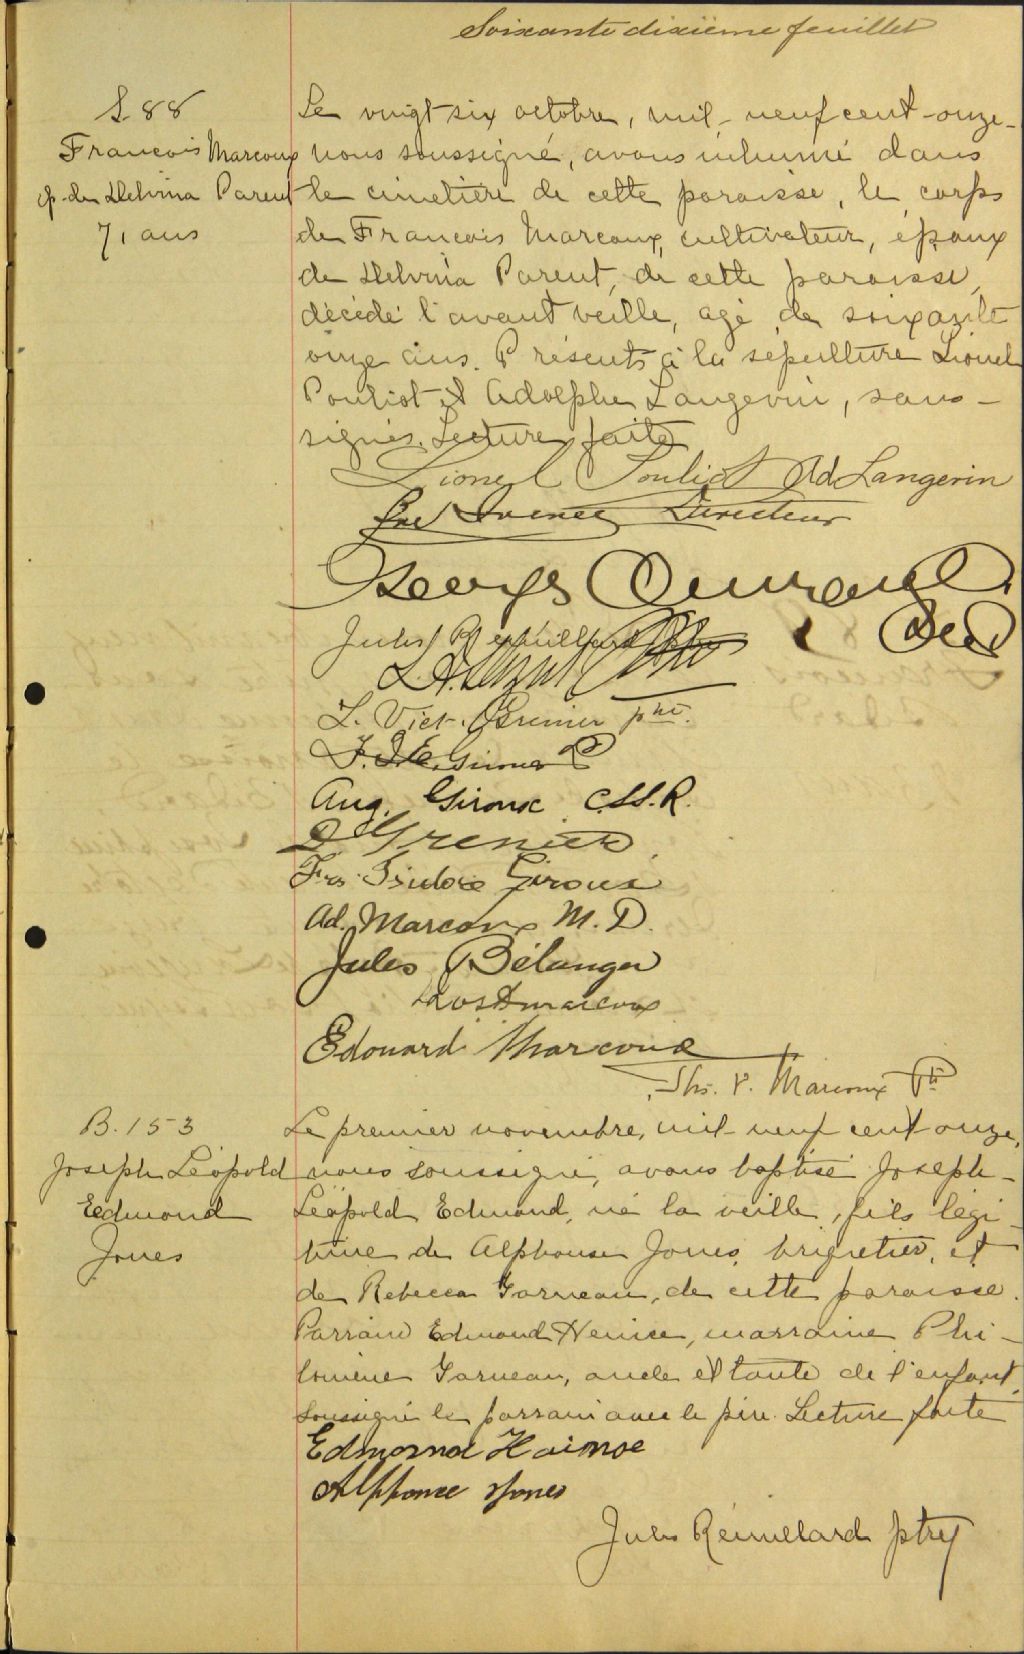 Soixante dixième feuillet
S 88
Francois Marcoux
ép. de Delvina Parent
71 ans
Le vingt six octobre, mil-neuf cent-onze-
nous soussigné, avons inhumé dans
le cimetière de cette paroisse, le corps
de Francois Marcoux, cultivateur, époux
de Delvina Parent, de cette paroisse,
décédé l'avant veille, agé de soixante
onze ans. Présents à la sépulture Lionel
Pouliot et Adolphe Langevin, sous-
signés. Lecture faite
Lionel Pouliot Ad Langevin
Directeur
Georges
Jules Rémillard
L. Vict. Grenier ptre.
F. J. E. Giroux
Aug. Giroux C.SS.R.
D Grenier
Frs. Isidore Giroux
Ad. Marcoux M.D.
Jules Bélanger
Marcoux
Edouard Marcoux
Ths. V. Marcoux Ptr
B. 153
Joseph Léopold
Edmond
Jones
Le premier novembre, mil-neuf cent onze,
nous soussigné, avons baptisé Joseph-
Léopold Edmond, né la veille, fils légi-
time de Alphonse Jones, briquetier, et
de Rebecca Garneau, de cette paroisse.
Parrain Edmond Henise, marraine Phi-
lomène Garneau, oncle et tante de l'enfant,
soussigné le parrain avec le père. Lecture faite
Edmond Hainse
Alphonce Jones
Jules Rémillard ptre